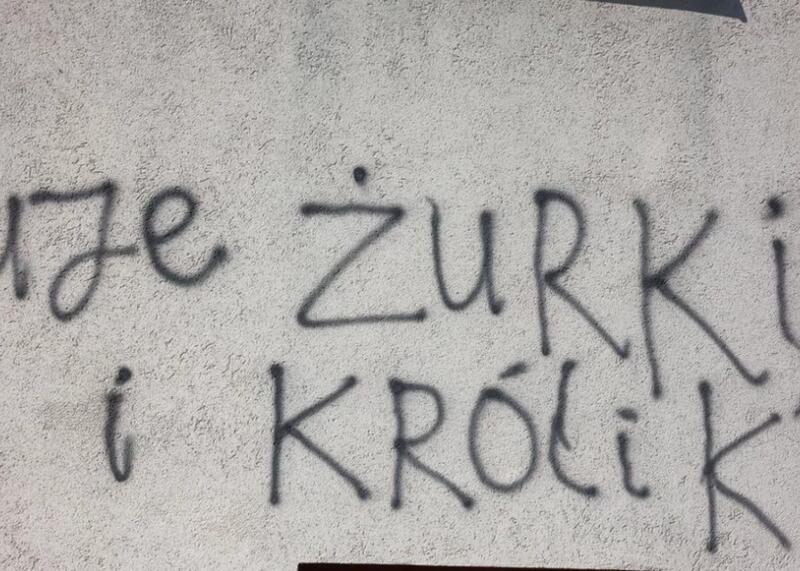 uje ŻURKi
i KRÓliK